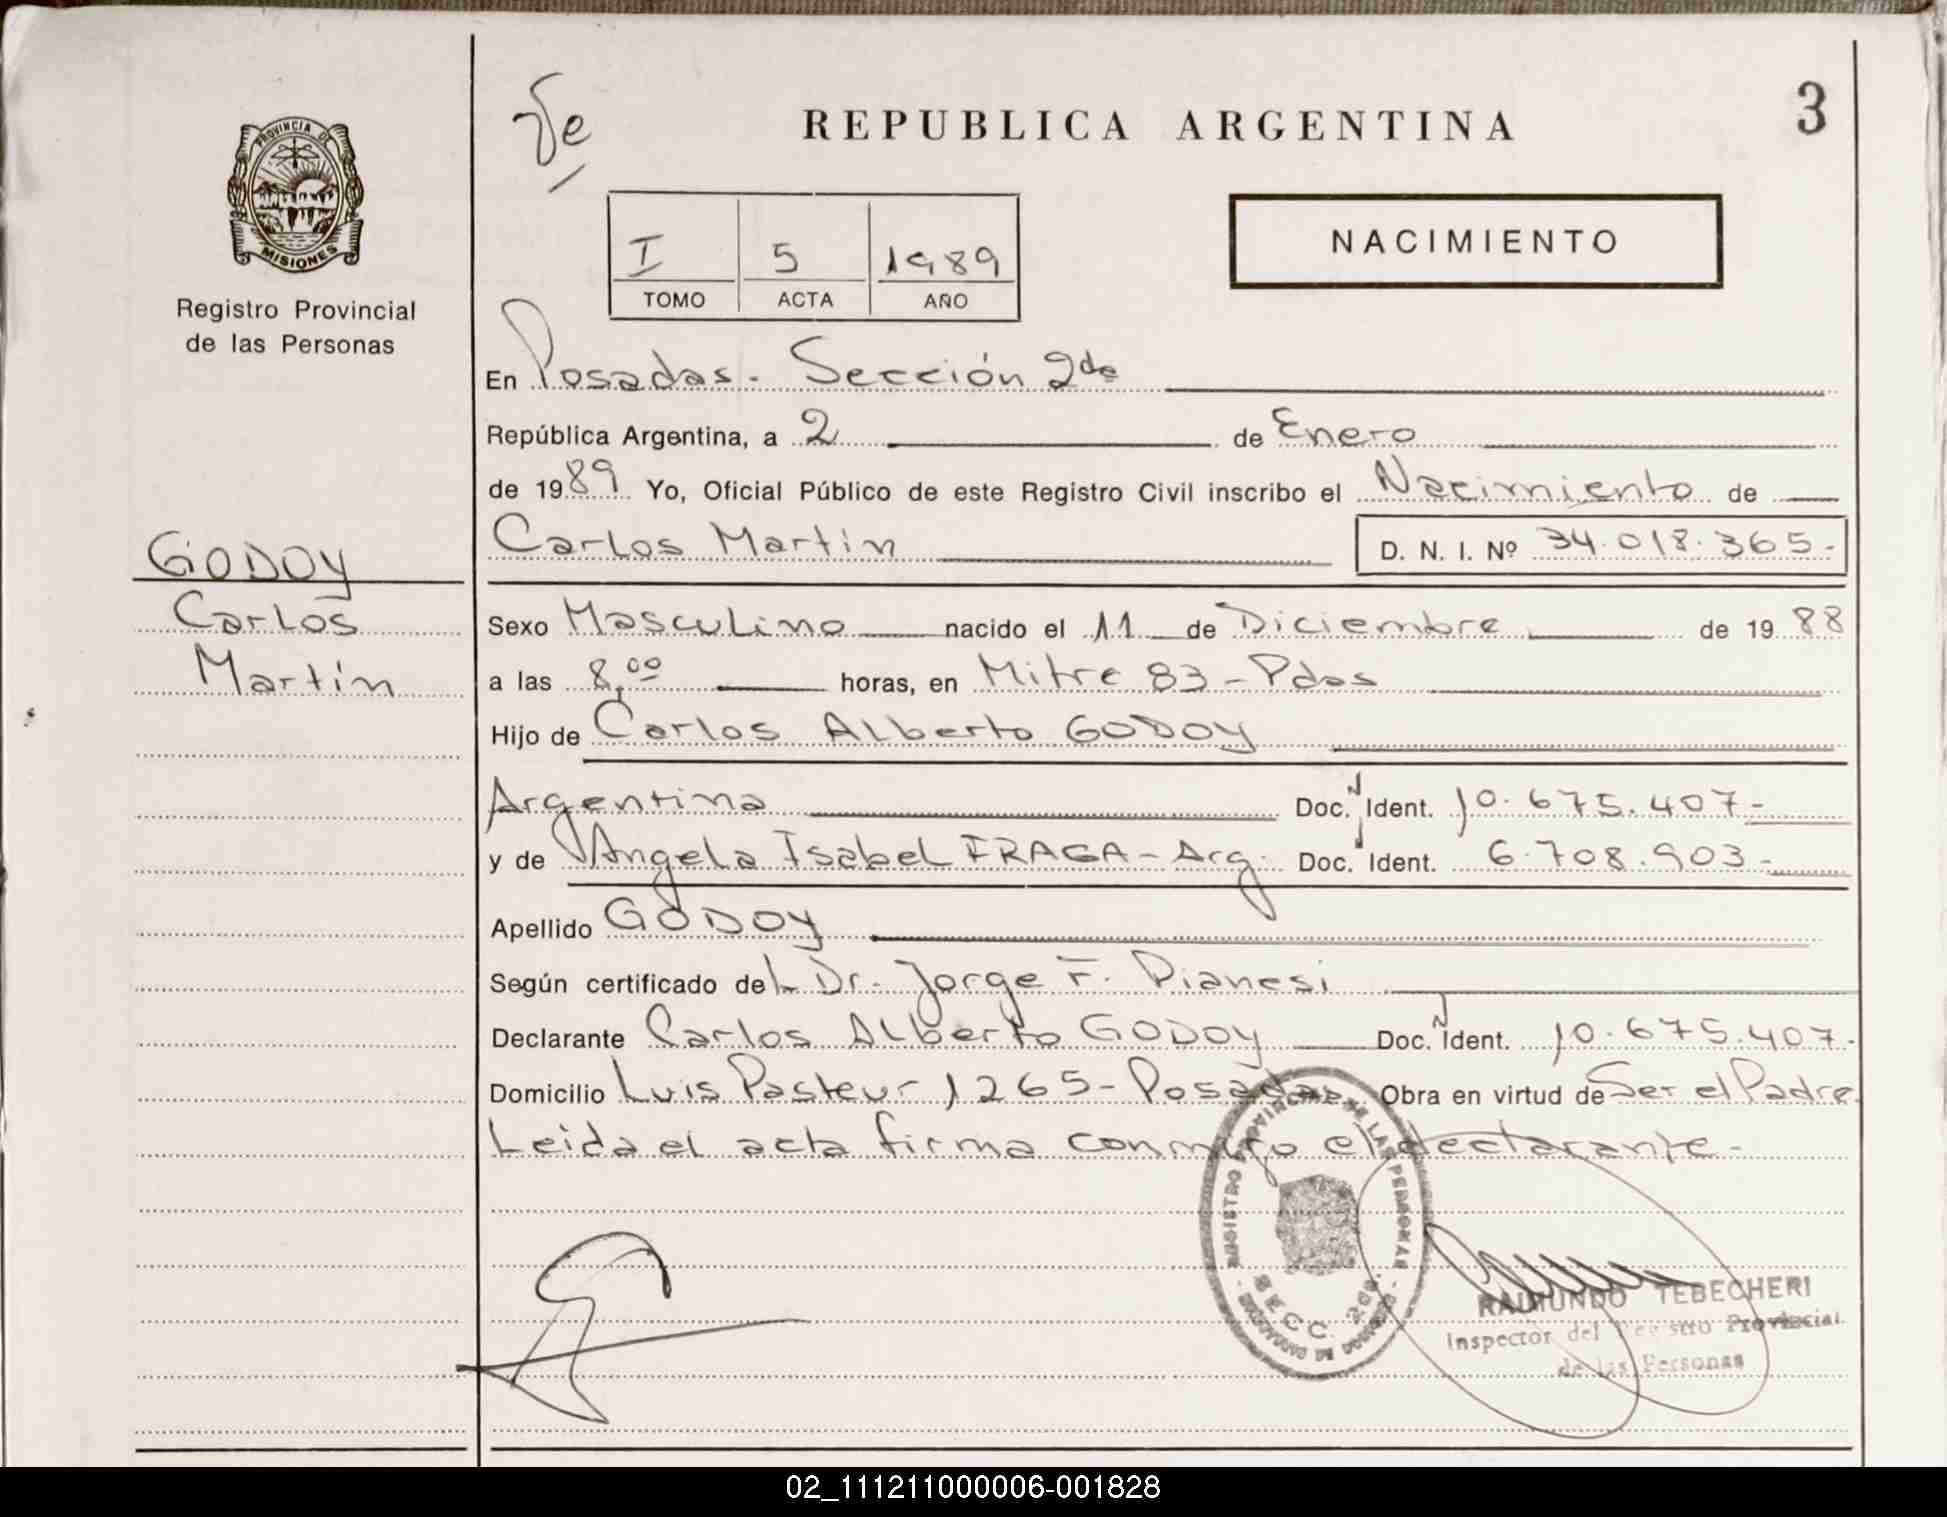 REPUBLICA ARGENTINA
3
PROVINCIA DE
MISIONES
Registro Provincial
de las Personas
NACIMIENTO
I 5 1989
TOMO ACTA AÑO
En Posadas - Sección 2da
República Argentina, a 2 de Enero
de 1989 Yo, Oficial Público de este Registro Civil inscribo el Nacimiento de
Carlos Martín D. N. I. Nº 34.018.365.-
GODOY
Carlos
Martín
Sexo Masculino nacido el 11 de Diciembre de 1988
a las 8,00 horas, en Mitre 83 - Pdas
Hijo de Carlos Alberto GODOY
Argentina Doc. Ident. 10.675.407-
y de Angela Isabel FRAGA - Arg. Doc. Ident. 6.708.903-
Apellido GODOY
Según certificado del Dr. Jorge F. Dianesi
Declarante Carlos Alberto GODOY Doc. Ident. 10.675.407-
Domicilio Luis Pasteur 1265 - Posadas Obra en virtud de Ser el Padre.
Leida el acta firma conmigo el declarante.-
REGISTRO PROVINCIAL DE LAS PERSONAS
SECC. 2da.
RAIMUNDO TEBECHERI
Inspector del Registro Provincial
de las Personas
02_111211000006-001828